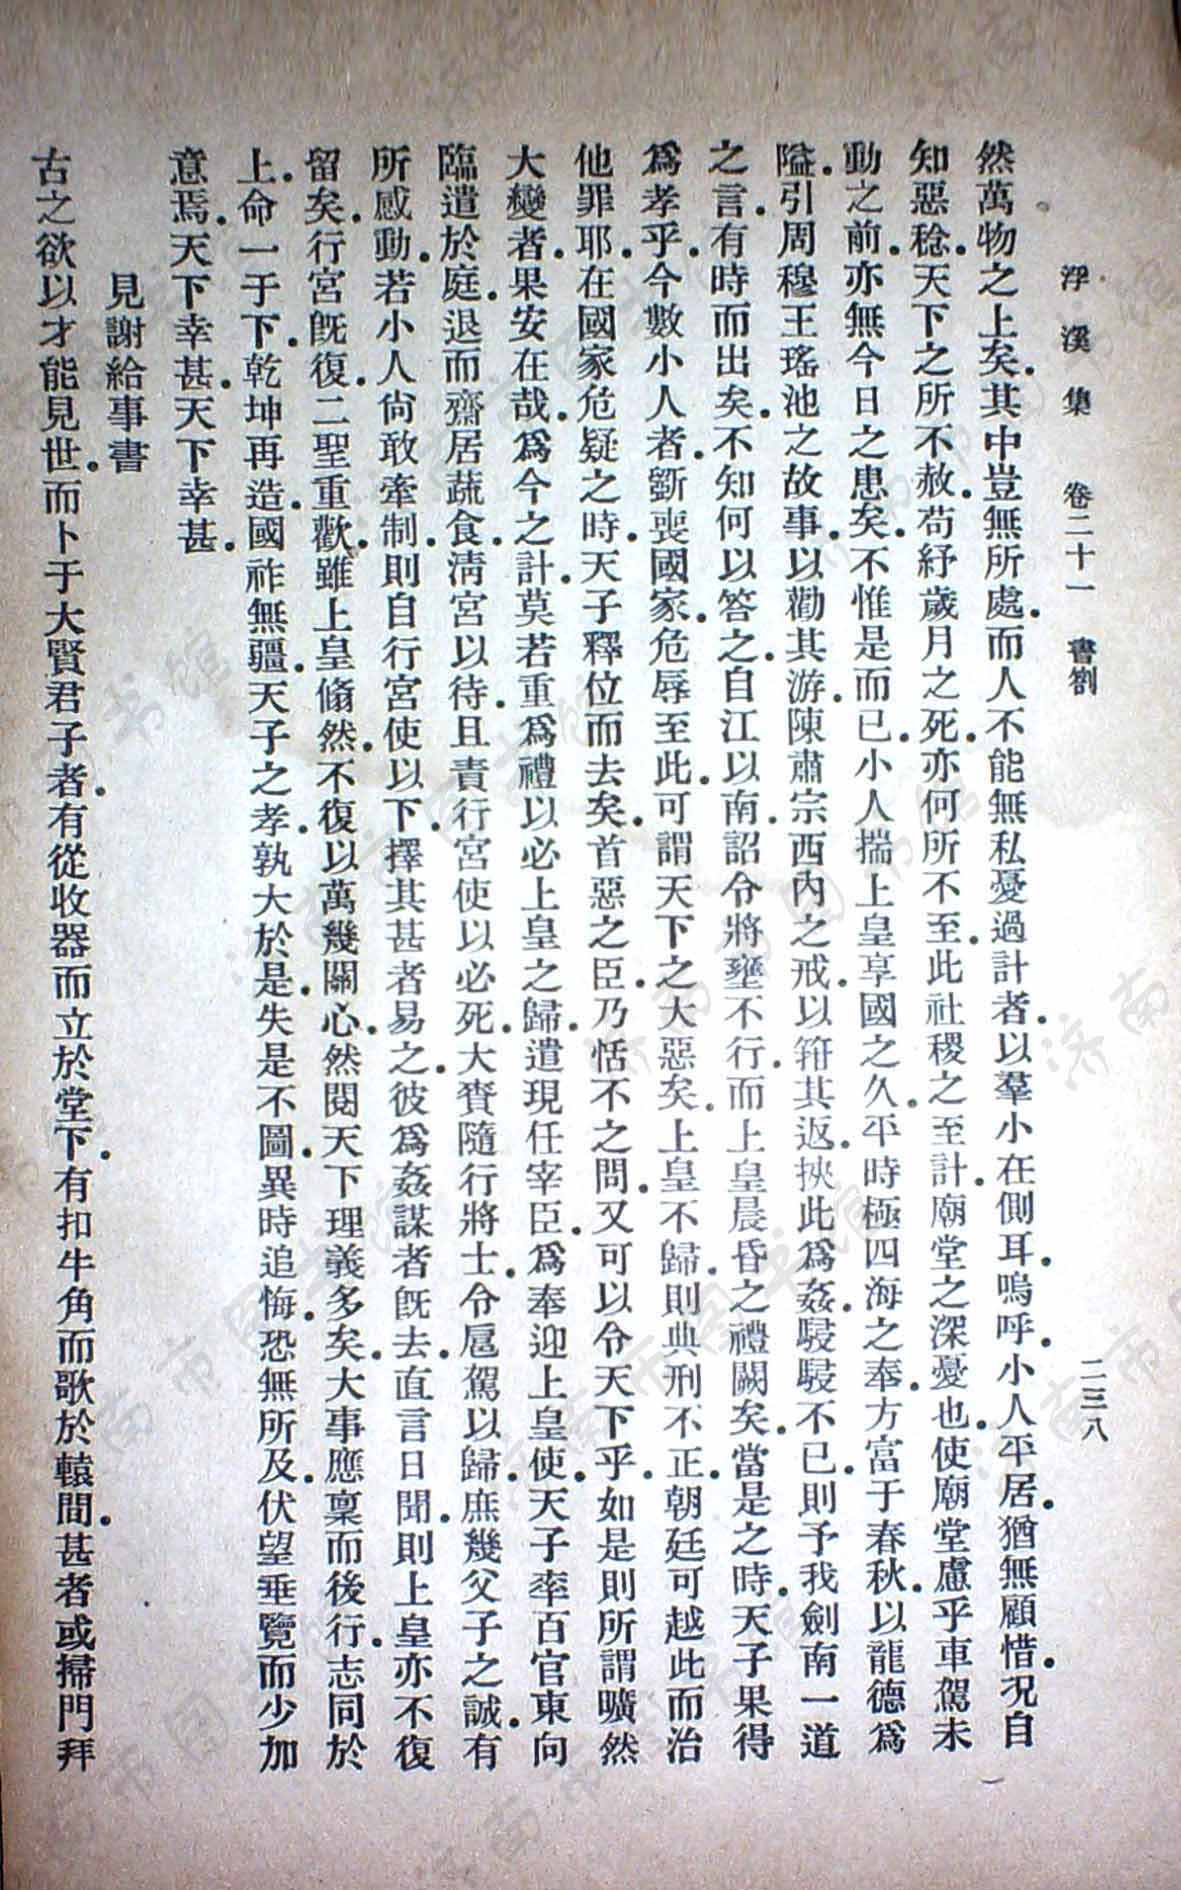 浮溪集 卷二十一 書劄 二三八
然萬物之上矣.其中豈無所處.而人不能無私憂過計者.以羣小在側耳.嗚呼.小人平居.猶無顧惜.況自
知惡稔.天下之所不赦.苟紓歲月之死.亦何所不至.此社稷之至計.廟堂之深憂也.使廟堂慮乎車駕未
動之前.亦無今日之患矣.不惟是而已.小人揣上皇享國之久.平時極四海之奉.方富于春秋.以龍德爲
隘.引周穆王瑤池之故事.以勸其游.陳肅宗西內之戒.以箝其返.挾此爲姦.駸駸不已.則予我劍南一道
之言.有時而出矣.不知何以答之.自江以南.詔令將壅不行.而上皇晨昏之禮闕矣.當是之時.天子果得
爲孝乎.今數小人者.斵喪國家.危辱至此.可謂天下之大惡矣.上皇不歸.則典刑不正.朝廷可越此而治
他罪耶.在國家危疑之時.天子釋位而去矣.首惡之臣.乃恬不之問.又可以令天下乎.如是則所謂曠然
大變者.果安在哉.爲今之計.莫若重爲禮以必上皇之歸.遣現任宰臣.爲奉迎上皇使.天子率百官東向
臨遣於庭.退而齋居蔬食.淸宮以待.且責行宮使以必死.大賚隨行將士.令扈駕以歸.庶幾父子之誠.有
所感動.若小人尙敢牽制.則自行宮使以下.擇其甚者易之.彼爲姦謀者旣去.直言日聞.則上皇亦不復
留矣.行宮旣復.二聖重歡.雖上皇翛然.不復以萬幾關心.然閱天下理義多矣.大事應稟而後行.志同於
上.命一于下.乾坤再造.國祚無疆.天子之孝.孰大於是.失是不圖.異時追悔.恐無所及.伏望垂覽而少加
意焉.天下幸甚.天下幸甚.
見謝給事書
古之欲以才能見世.而卜于大賢君子者.有從收器而立於堂下.有扣牛角而歌於轅間.甚者或掃門拜